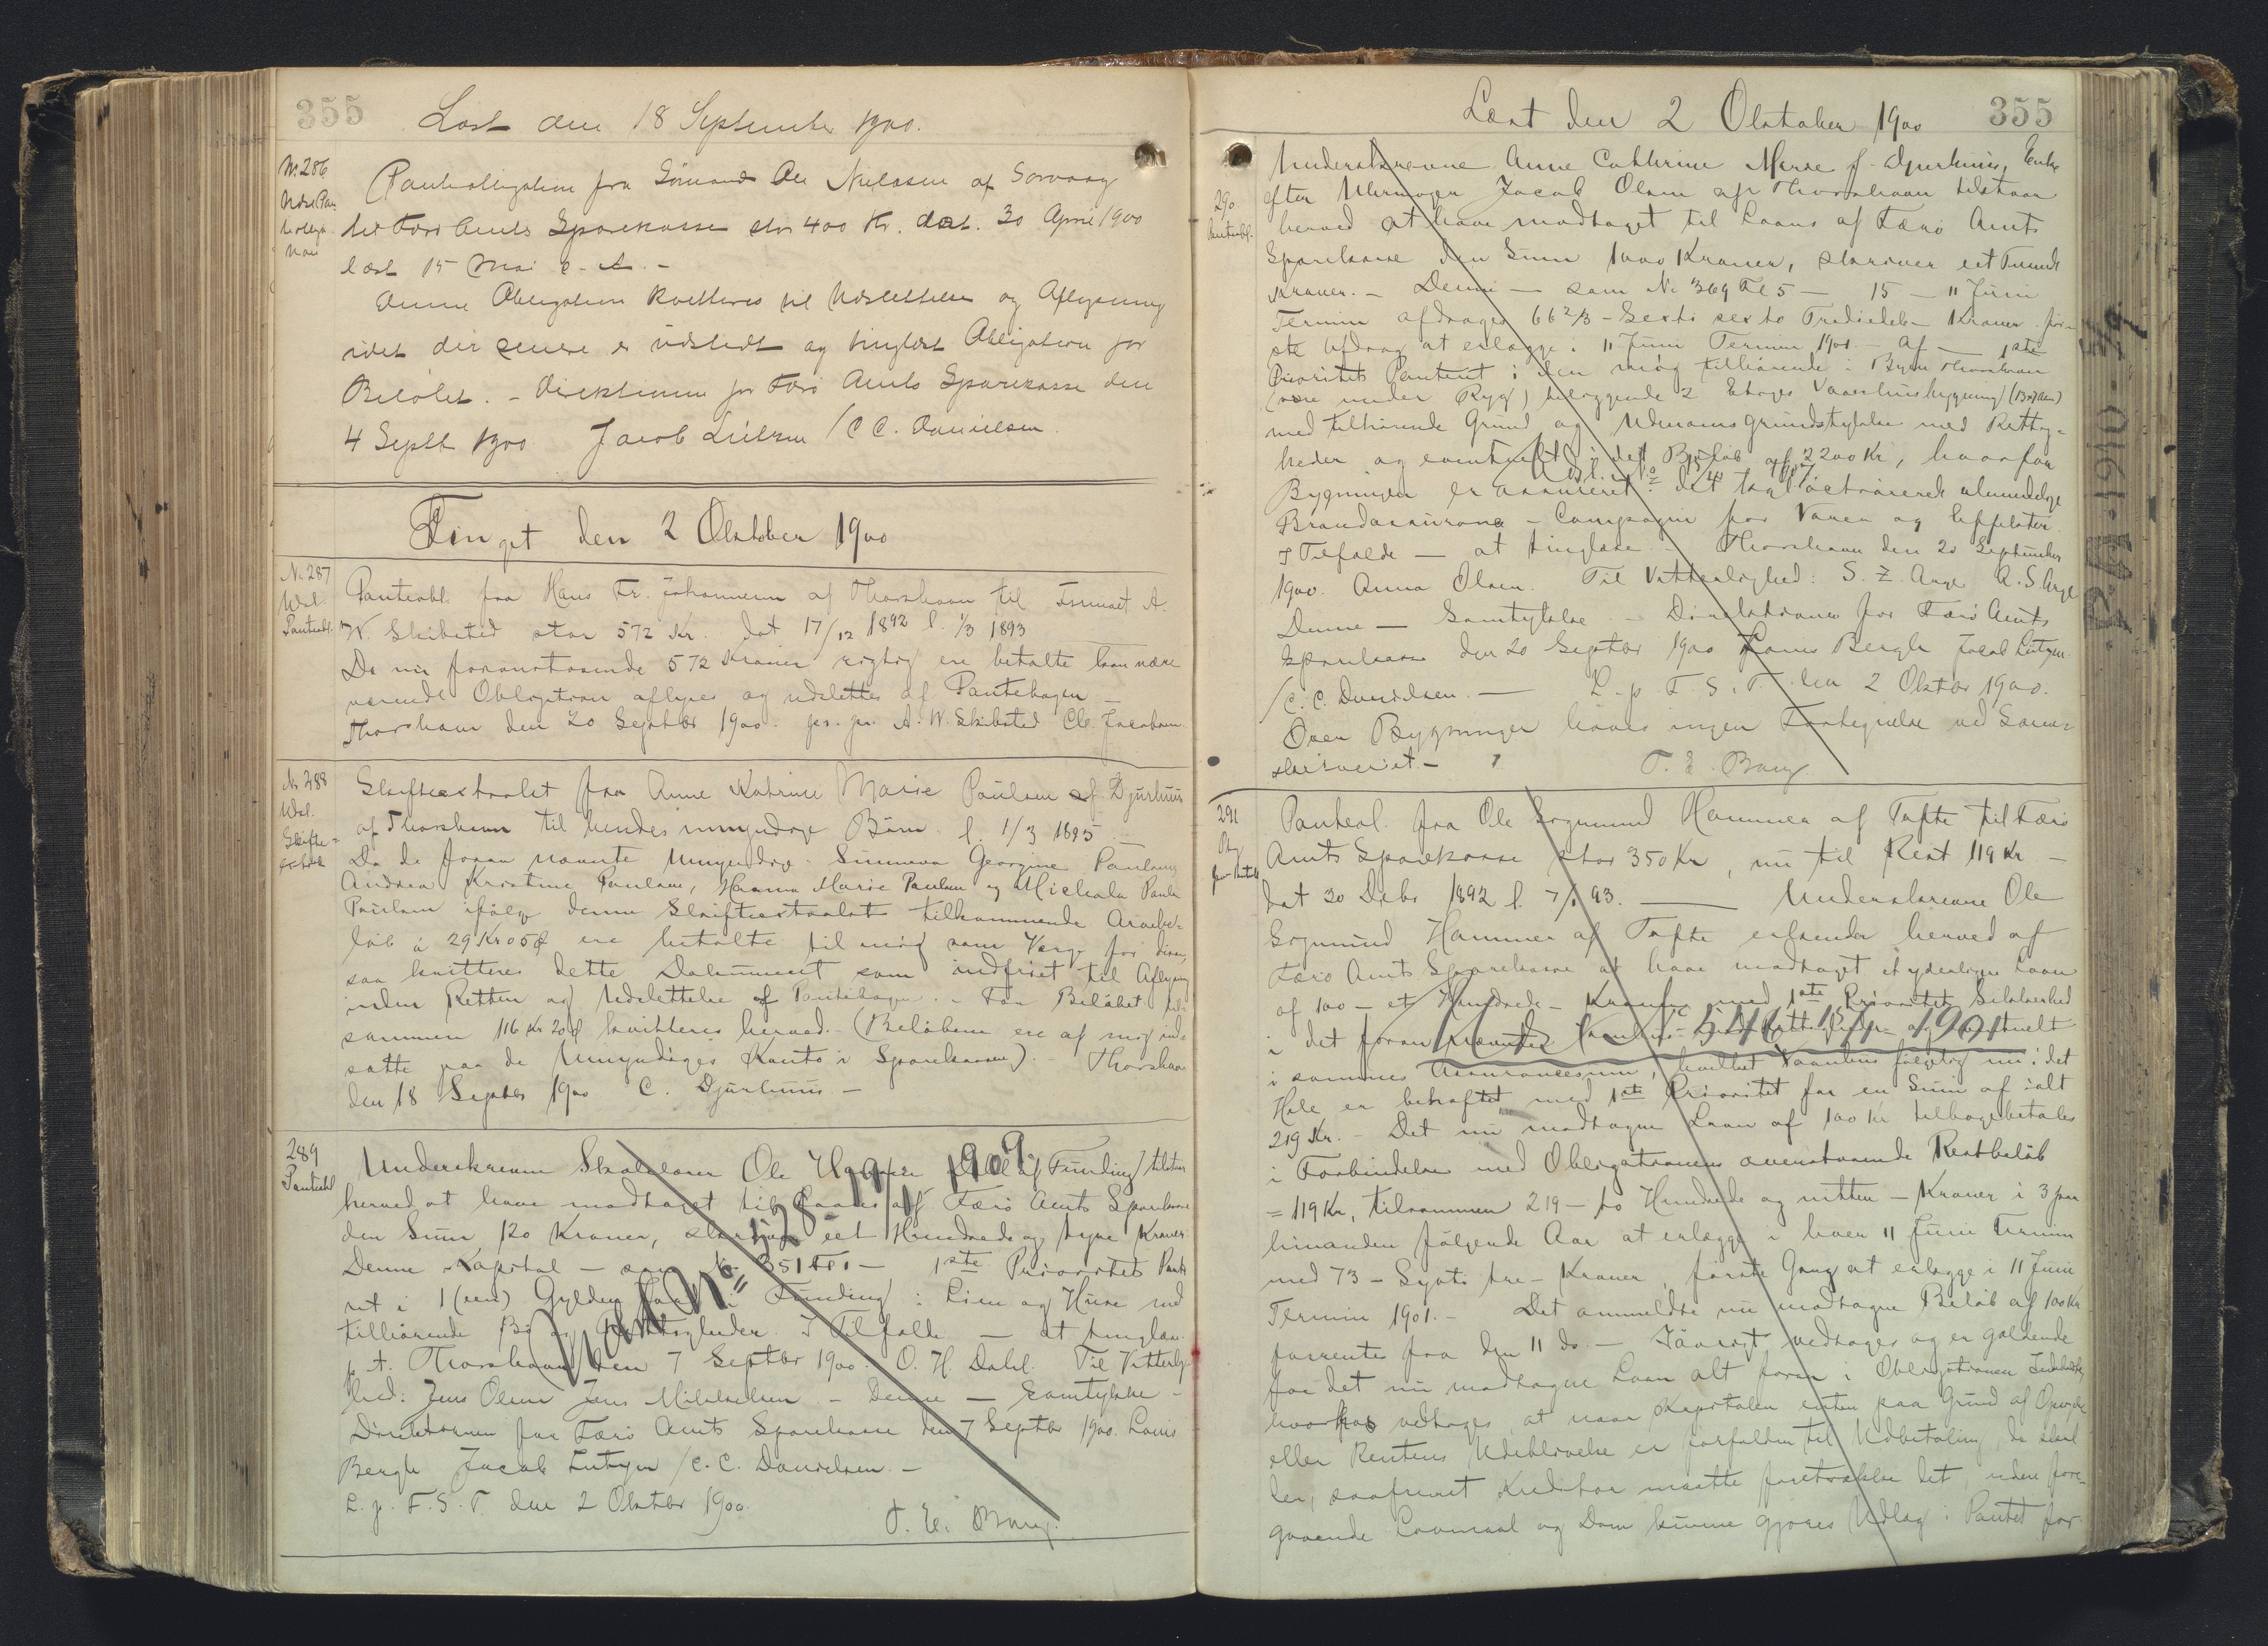 355
Læst den 18 September 1900.
No. 286
Udsl. Pan-
teobliga-
tion
Panteobligation fra Sømand Ole Nielsen af Sørvaag
til Færø Amts Sparekasse stor 400 Kr. dat. 30 April 1900
læst 15 Mai s. A. -
Denne Obligation kvitteres til Udslettelse og Aflysning
idet der senere er udstedt og tinglæst Obligation for
Beløbet. - Direktionen for Færø Amts Sparekasse den
4 Septb 1900 Jacob Lützen / C. C. Danielsen.
Tinget den 2 Oktober 1900
No. 287
Udsl.
Panteobl.
Panteobl. fra Hans Fr. Johannesen af Thorshavn til Firmaet A.
W. Skibsted stor 572 Kr. dat 17/12 1892 l. 1/3 1893
Da nu foranstaaende 572 Kroner rigtig ere betalte kan nær-
værende Obligation aflyses og udslettes af Pantebogen -
Thorshavn den 20 Septbr 1900. pr. pr. A. W. Skibsted Chr. Jacobsen.
No 288
Udsl.
Skifte-
extrakt
Skifteextrakt fra Anne Katrine Marie Paulsen f. Djurhuus
af Thorshavn til hendes umyndige Børn. l. 1/3 1895
Da de foran nævnte Umyndige: Sunneva Georgine Paulsen,
Andrea Kristine Paulsen, Hanna Marie Paulsen og Michala Paula
Paulsen ifølge denne Skifteextrakt tilkommende Arvebe-
løb à 29 Kr 05 Ø ere betalte til mig som Værge for disse,
saa kvitteres dette Dokument som indfriet til Aflysning
inden Retten og Udslettelse af Pantebogen. - For Beløbet til-
sammen 116 Kr 20 Ø kvitteres herved. - (Beløbene ere af mig ind-
satte paa de Umyndiges Konto i Sparekassen). - Thorshavn
den 18 Septbr 1900 C. Djurhuus -
289
Panteobl
Underskrevne Skolelærer Ole H. Dahl af Funding tilstaar
herved at have modtaget til Laans af Færø Amts Sparekasse
den Sum 120 Kroner, skriver eet Hundrede og tyve Kroner.
Denne Kapital - som No. 351 - 1ste Prioritets Pante-
ret i 1 (een) Gylden Jord i Funding: Lien og Huse med
tilhørende Bø og Rettigheder. I Tilfælde - at tinglæse.
p. t. Thorshavn den 7 Septbr 1900. O. H. Dahl. Til Vitterlig-
hed: Jens Olsen Jens Mikkelsen - Denne - Samtykke -
Direktionen for Færø Amts Sparekasse den 7 Septbr 1900. Louis
Bergh Jacob Lützen / C. C. Danielsen. -
L. p. F. S. T. den 2 Oktbr 1900.
T. E. Bang.
1909.
355
Læst den 2 Oktober 1900
290
Panteobl.
Underskrevne Anne Cathrine Marie f. Djurhuus, Enke
efter Uhrmager Jacob Olsen af Thorshavn tilstaar
herved at have modtaget til Laans af Færø Amts
Sparekasse den Sum 1000 Kroner, skriver eet Tusinde
Kroner. - Denne - som No 369 Fl 5 - 15 - 11 Juni
Termin afdrages 66 2/3 - Seksti seks to Trediedels - Kroner før-
ste Afdrag at erlægge i 11 Juni Termin 1901 - Af - 1ste
Prioritets Panteret i den mig tilhørende i Byen Thorshavn
(øre under Ryg) beliggende 2 Etages Vaaningshusbygning
med tilhørende Grund og Udmarksgrundstykke med Rettig-
heder og eventuelt i det Beløb af 2200 Kr, hvorfor
Bygningen er assureret i det kgl. octroierede almindelige
Brandassurance - Compagni for Varer og Effekter.
I Tilfælde - at tinglæse. - Thorshavn den 20 September
1900. Anna Olsen. Til Vitterlighed: S. Z. Arge A. S. Arge
Denne - Samtykke. - Direktionen for Færø Amts
Sparekasse den 20 Septbr 1900 Louis Bergh Jacob Lützen.
/ C. C. Danielsen. - L. p. F. S. T. den 2 Oktbr 1900.
Over Bygninger haves ingen Fortegnelse ved Soren-
skriveriet. - T. E. Bang
1910
291
Panteobl. fra Ole Sogmund Hammer af Tofte til Færø
Amts Sparekasse stor 350 Kr, nu til Rest 119 Kr -
dat 30 Decbr 1892 l. 7/1 93. - Underskrevne Ole
Sogmund Hammer af Tofte erkender herved af
Færø Amts Sparekasse at have modtaget et yderligere Laan
af 100 - et Hundrede - Kroner med 1ste Prioritets Sikkerhed
i det foran nævnte Vaanhus og eventuelt
i sammes Assurancesum, hvilket Vaanhus følgelig nu i det
Hele er behæftet med 1ste Prioritet for en Sum af ialt
219 Kr. - Det nu modtagne Laan af 100 Kr tilbagebetales
i Forbindelse med Obligationens ovenstaaende Restbeløb
= 119 Kr, tilsammen 219 - to Hundrede og nitten - Kroner i 3 paa
hinanden følgende Aar at erlægge i hver 11 Juni Termin
med 73 - Sytti tre - Kroner, første Gang at erlægge i 11 Juni
Termin 1901. - Det anmeldte nu modtagne Beløb af 100 Kr
forrentes fra den 11 ds. - Iøvrigt vedtages og er gældende
for det nu modtagne Laan alt foran i Obligationen Indeholdte,
hvorhos vedtages, at naar Kapitalen enten paa Grund af Opsigelse
eller Rentens Udeblivelse er forfalden til Udbetaling, da skal
der, saafremt Kreditor maatte foretrække det, uden fore-
gaaende Lovmaal og Dom kunne gjøres Udlæg i Pantet for
546 15/4 1901